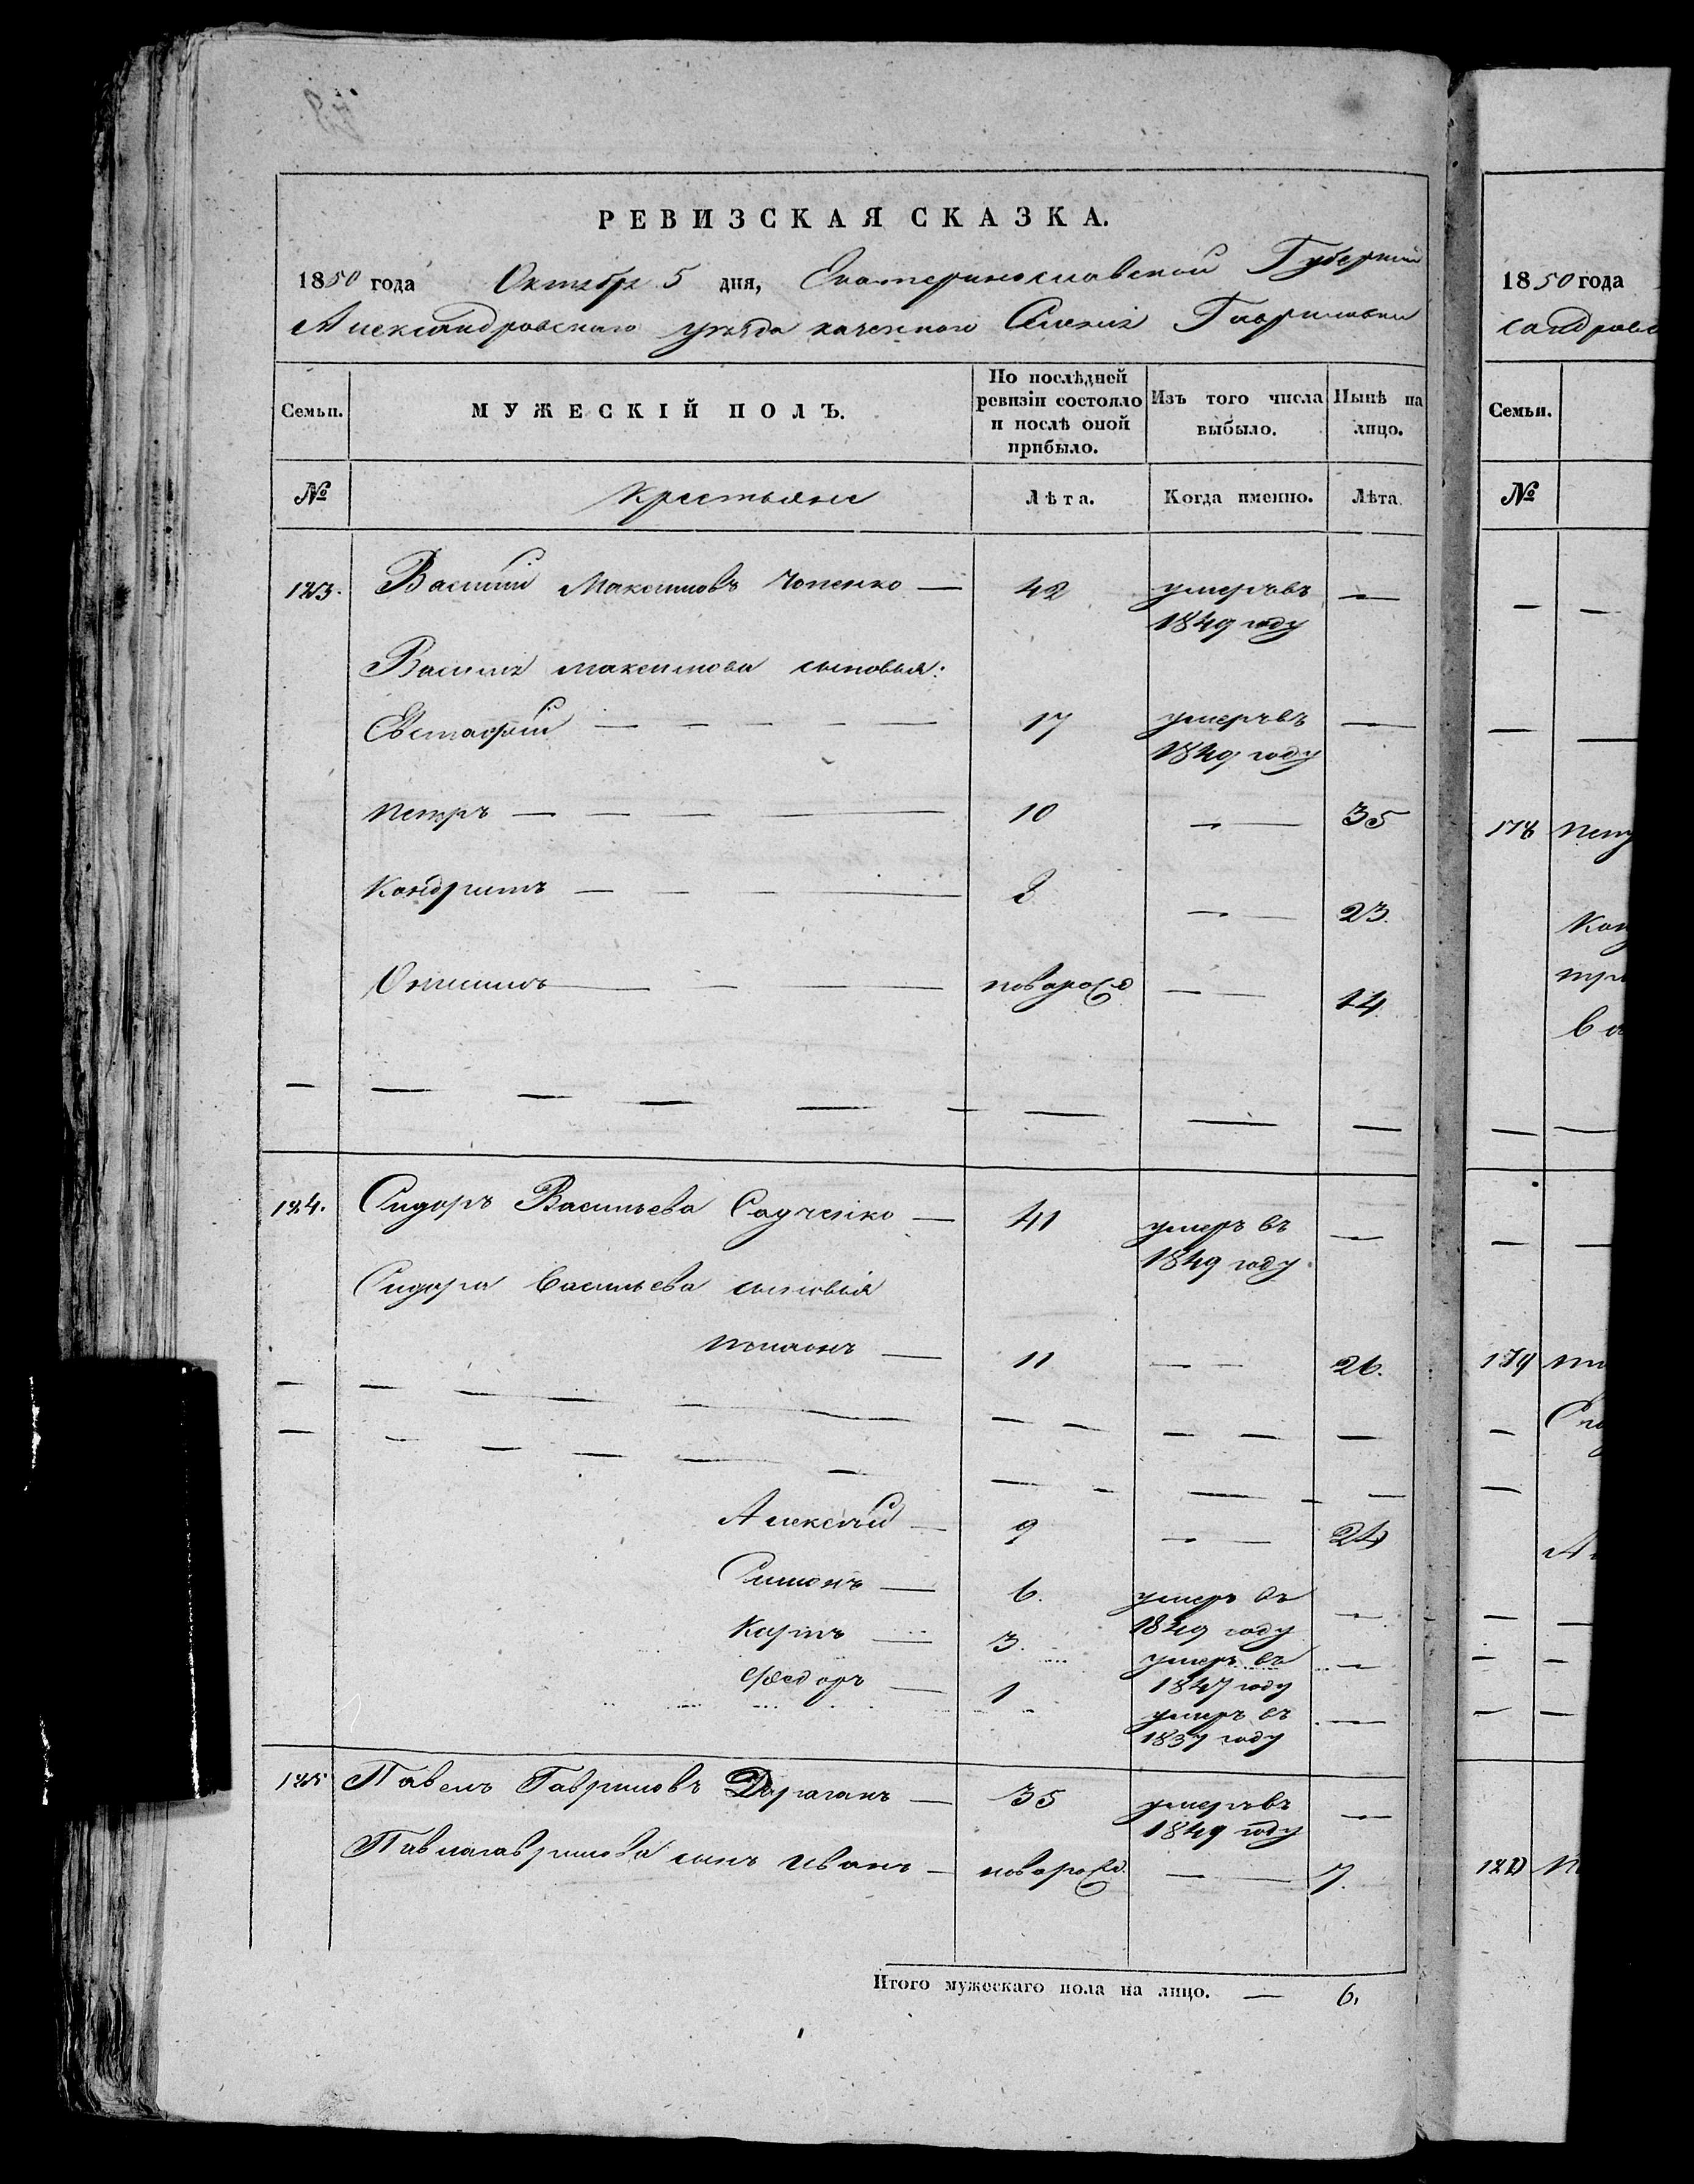 РЕВИЗСКАЯ СКАЗКА.
1850 года Октября 5 дня, Екатеринославской Губернии
Александровскаго уезда казеннаго Селения Гавриловки
Семьи. МУЖЕСКІЙ ПОЛЪ. По послѣдней ревизіи состояло и послѣ оной прибыло. Изъ того числа выбыло. Нынѣ на лицо.
№ Крестьяне Лѣта. Когда именно. Лѣта.
123. Василій Максимовъ Чопенко — 42 умеръ въ —
1849 году
Василія Максимова сыновья:
Евстафій — — — — — 17 умеръ въ —
1849 году
Петръ — — — — — 10 — — 35
Кондратъ — — — — 8 — — 23.
Онисимъ — — — — новорожд — — 14.
124. Сидоръ Васильева Саученко — 41 умеръ въ —
1849 году
Сидора Васильева сыновья
— 11 — — 26.
Алексѣй — 9 — — 24
Симонъ — 6. умеръ въ —
1849 году
Карпъ — 3. умеръ въ —
1847 году
Федоръ — 1 умеръ въ —
1837 году
125 Павелъ Гавриловъ Дараганъ — 35 умеръ въ —
1849 году
Павла Гаврилова сынъ Иванъ — новорожд. — — 7.
Итого мужескаго пола на лицо. — 6.
1850 года
сандровс
Семьи.
№
178
179
180